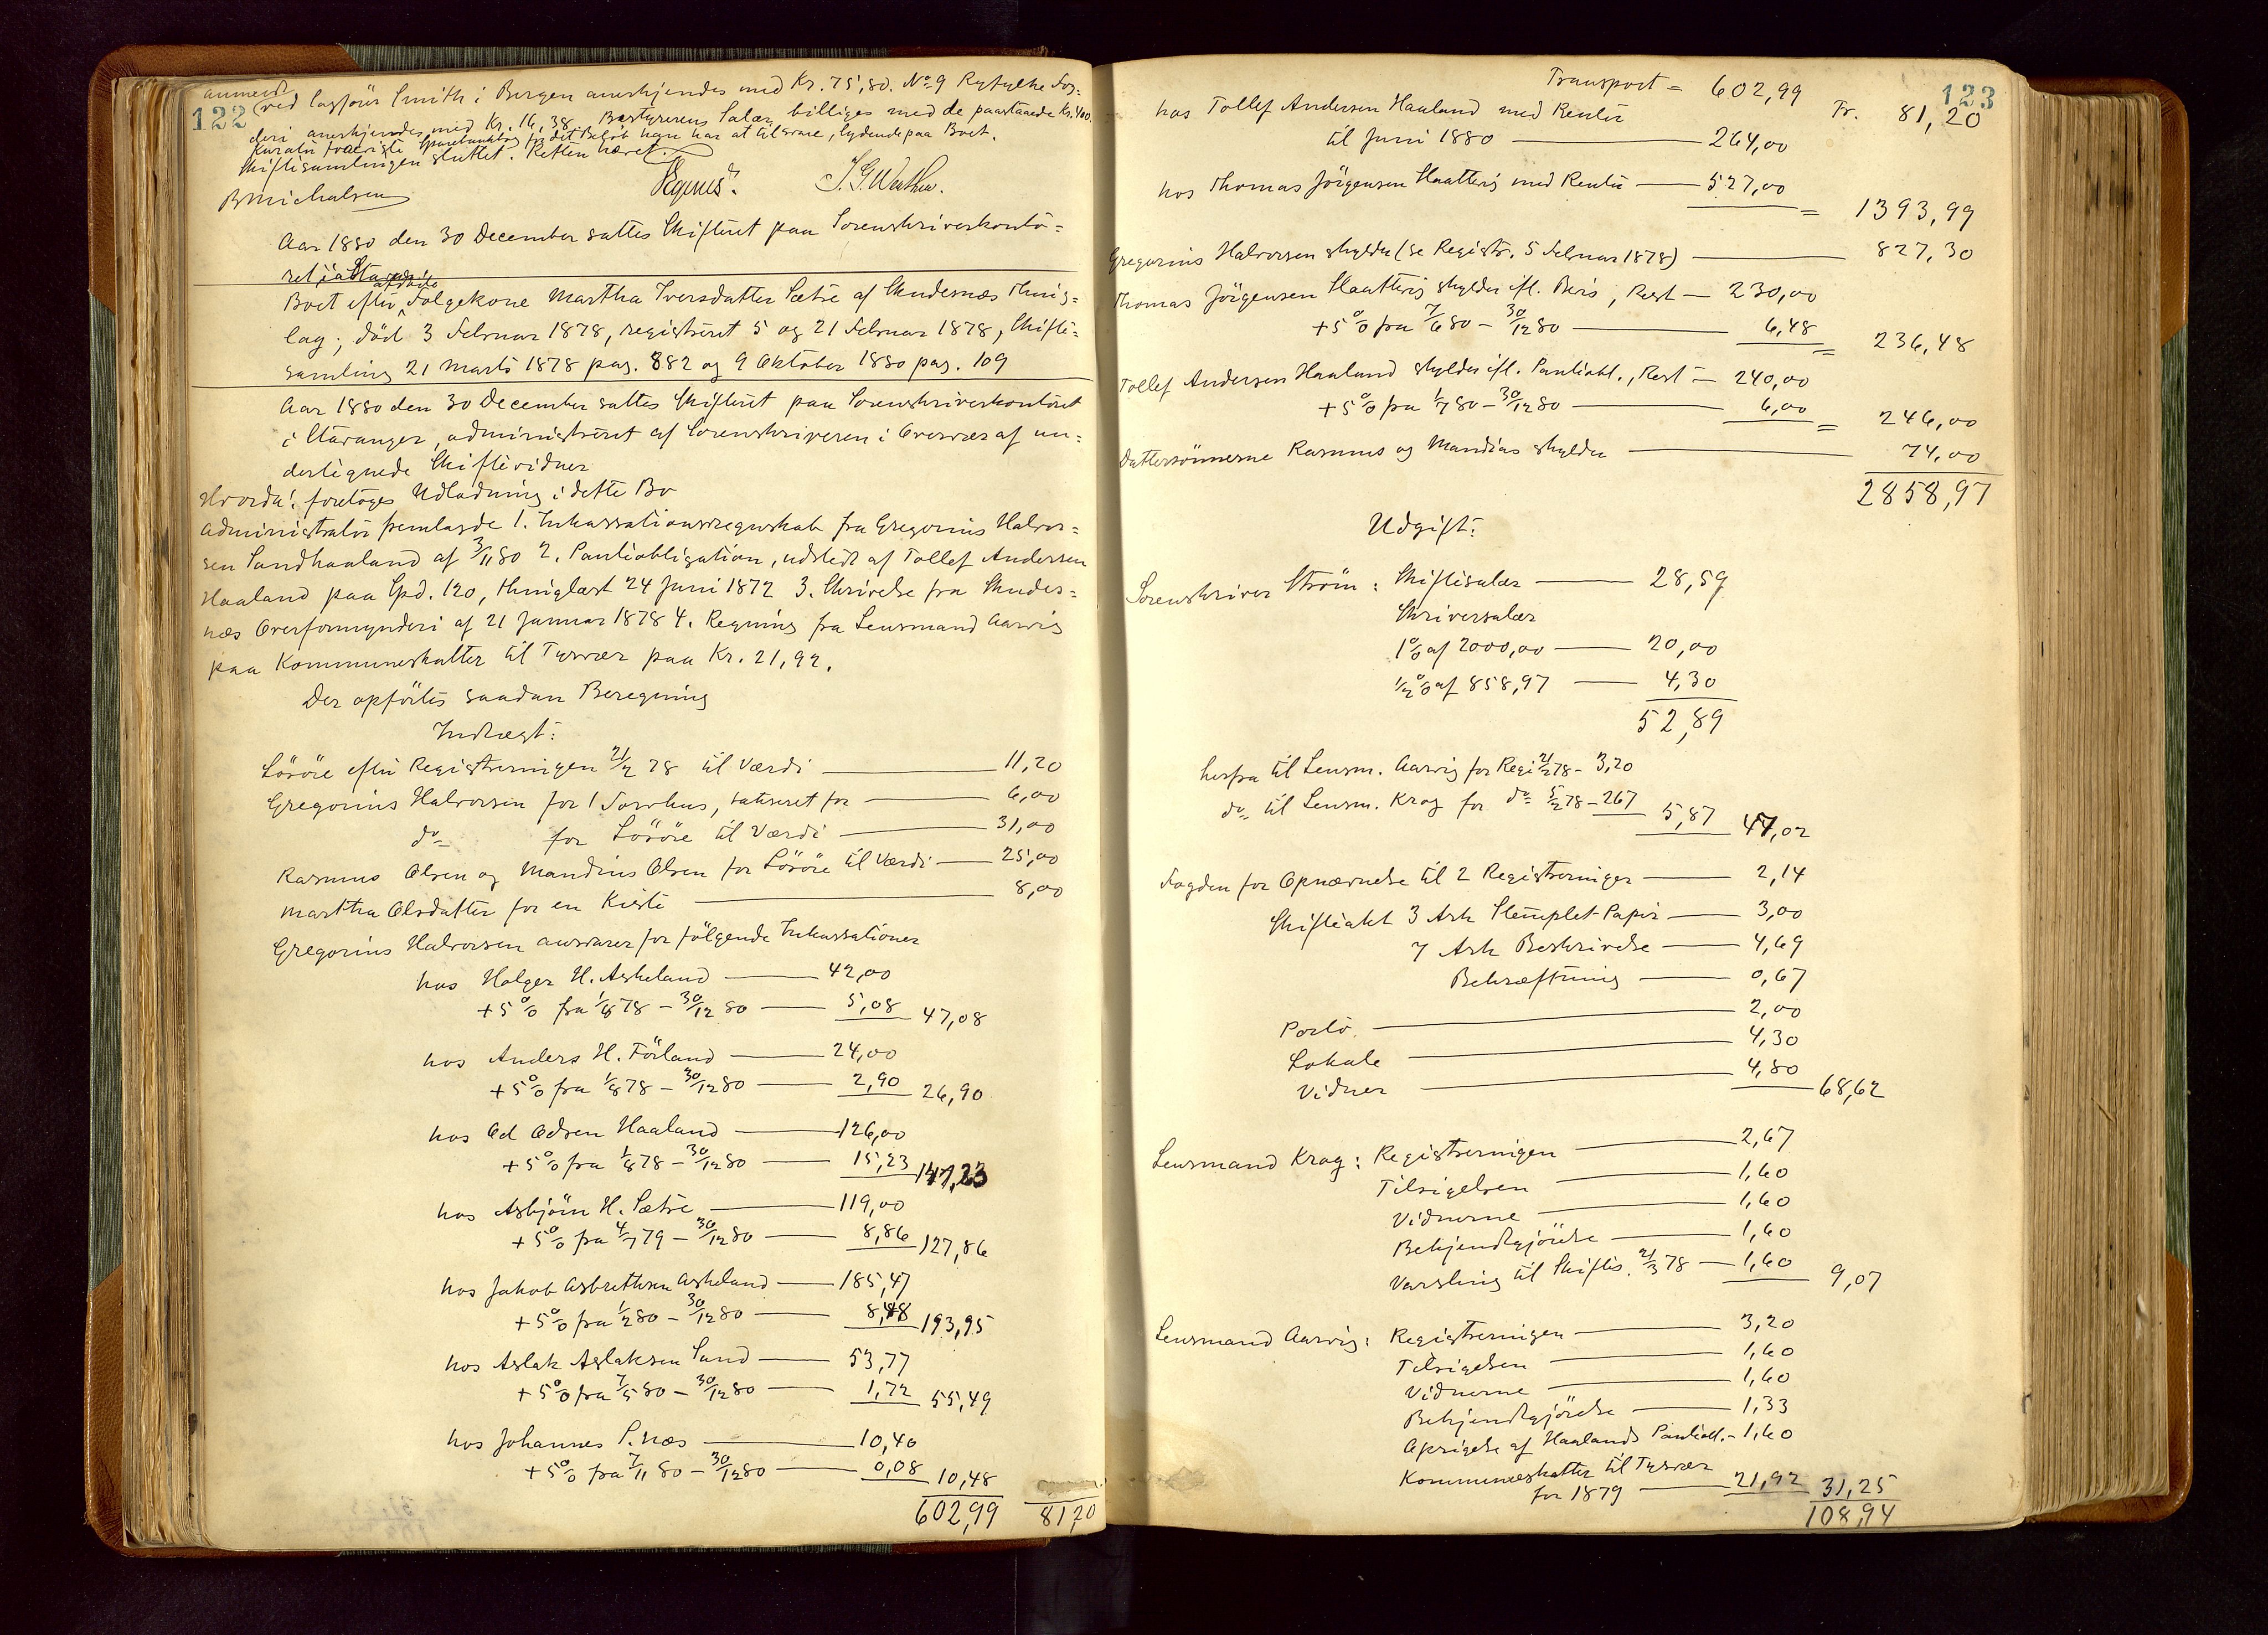 122
anmeldt ved Sagfører Smith i Bergen anerkjendes med Kr. 75,80. No 9 Ryfylke Fog-
deri anerkjendes med Kr. 16,38. Bestyrerens Salær billiges med de paastaaede Kr. 400.
Kurator foreviste Sparebankbog for det Beløb han har at tilsvare, lydende paa Boet.
Skiftesamlingen sluttet. Retten hævet.
B Michalsen
J. G. Werther.
Aar 1880 den 30 December sattes Skifteret paa Sorenskriverkonto-
ret i Stavanger
Boet efter afdøde Folgekone Martha Iversdatter Sætre af Skudesnæs Thing-
lag, död 3 Februar 1878, registreret 5 og 21 Februar 1878, Skifte-
samling 21 Marts 1878 pag. 882 og 9 Oktober 1880 pag. 109
Aar 1880 den 30 December sattes Skifteret paa Sorenskriverkontoret
i Stavanger, administreret af Sorenskriveren i Overvær af un-
dertegnede Skiftevidner
Hvorda: foretoges Udlodning i dette Bo
Administrator fremlagde 1. Inkassationsregnskab fra Gregorius Halvor-
sen Sandhaaland af 3/11 80 2. Panteobligation, udstedt af Tollef Andersen
Haaland paa Spd. 120, thinglæst 24 Juni 1872 3. Skrivelse fra Skudes-
næs Overformynderi af 21 Januar 1878 4. Regning fra Lensmand Aarvig
paa Kommuneskatter til Tysvær paa Kr. 21,92.
Der opförtes saadan Beregning
Indtægt:
Lösöre efter Registreringen 21/2 78 til Værdi 11,20
Gregorius Halvorsen for 1 Torvhus, taxeret for 6,00
do for Lösöre til Værdi 31,00
Rasmus Olsen og Mandius Olsen for Lösöre til Værdi 25,00
Martha Olsdatter for en Kiste 8,00
Gregorius Halvorsen ansvarer for fölgende Inkassationer
hos Holger H. Askeland 42,00
+ 5% fra 1/8 78 - 30/12 80 5,08 47,08
hos Anders H. Förland 24,00
+ 5% fra 1/8 78 - 30/12 80 2,90 26,90
hos Od Odsen Haaland 126,00
+ 5% fra 1/8 78 - 30/12 80 15,23 141,23
hos Asbjörn H. Sætre 119,00
+ 5% fra 4/7 79 - 30/12 80 8,86 127,86
hos Jakob Asbrethsen Askeland 185,47
+ 5% fra 1/2 80 - 30/12 80 8,48 193,95
hos Aslak Aslaksen Sund 53,77
+ 5% fra 7/5 80 - 30/12 80 1,72 55,49
hos Johannes S. næs 10,40
+ 5% fra 7/11 80 - 30/12 80 0,08 10,48
602,99 81,20
123
Transport = 602,99 Fr. 81,20
hos Tollef Andersen Haaland med Renter
til Juni 1880 264,00
hos Thomas Jörgensen Haattveig med Renter 527,00 = 1393,99
Gregorius Halvorsen skylder (se Registr. 5 Februar 1878) 827,30
Thomas Jörgensen Haattveig skylder ifl. Bevis, Rest 230,00
+ 5% fra 7/6 80 - 30/12 80 6,48 = 236,48
Tollef Andersen Haaland skylder ifl. Panteobl., Rest 240,00
+ 5% fra 1/7 80 - 30/12 80 6,00 = 246,00
Dattersönnerne Rasmus og Mandius skylder 74,00
2858,97
Udgift:
Sorenskriver Ström: Skiftesalær 28,59
Skriversalær
1% af 2000,00 20,00
1/2% af 858,97 4,30
52,89
herfra til Lensm. Aarvig for Regi 21/2 78 - 3,20
do til Lensm. Krag for do 5/2 78 - 267 5,87 47,02
Fogden for Opnævnelse til 2 Registreringer 2,14
Skifteakt 3 Ark Stemplet Papir 3,00
7 Ark Beskrivelse 4,69
Bekræftning 0,67
Porto 2,00
Lokale 4,30
Vidner 4,80 68,62
Lensmand Krag: Registreringen 2,67
Tilsigelsen 1,60
Vidnerne 1,60
Bekjendtgjörelse 1,60
Varsling til Skiftes. 21/3 78 1,60 9,07
Lensmand Aarvig: Registreringen 3,20
Tilsigelsen 1,60
Vidnerne 1,60
Bekjendtgjörelse 1,33
Opsigelse af Haalands Panteobl. - 1,60
Kommuneskatter til Tysvær
for 1879 21,92 31,25
108,94